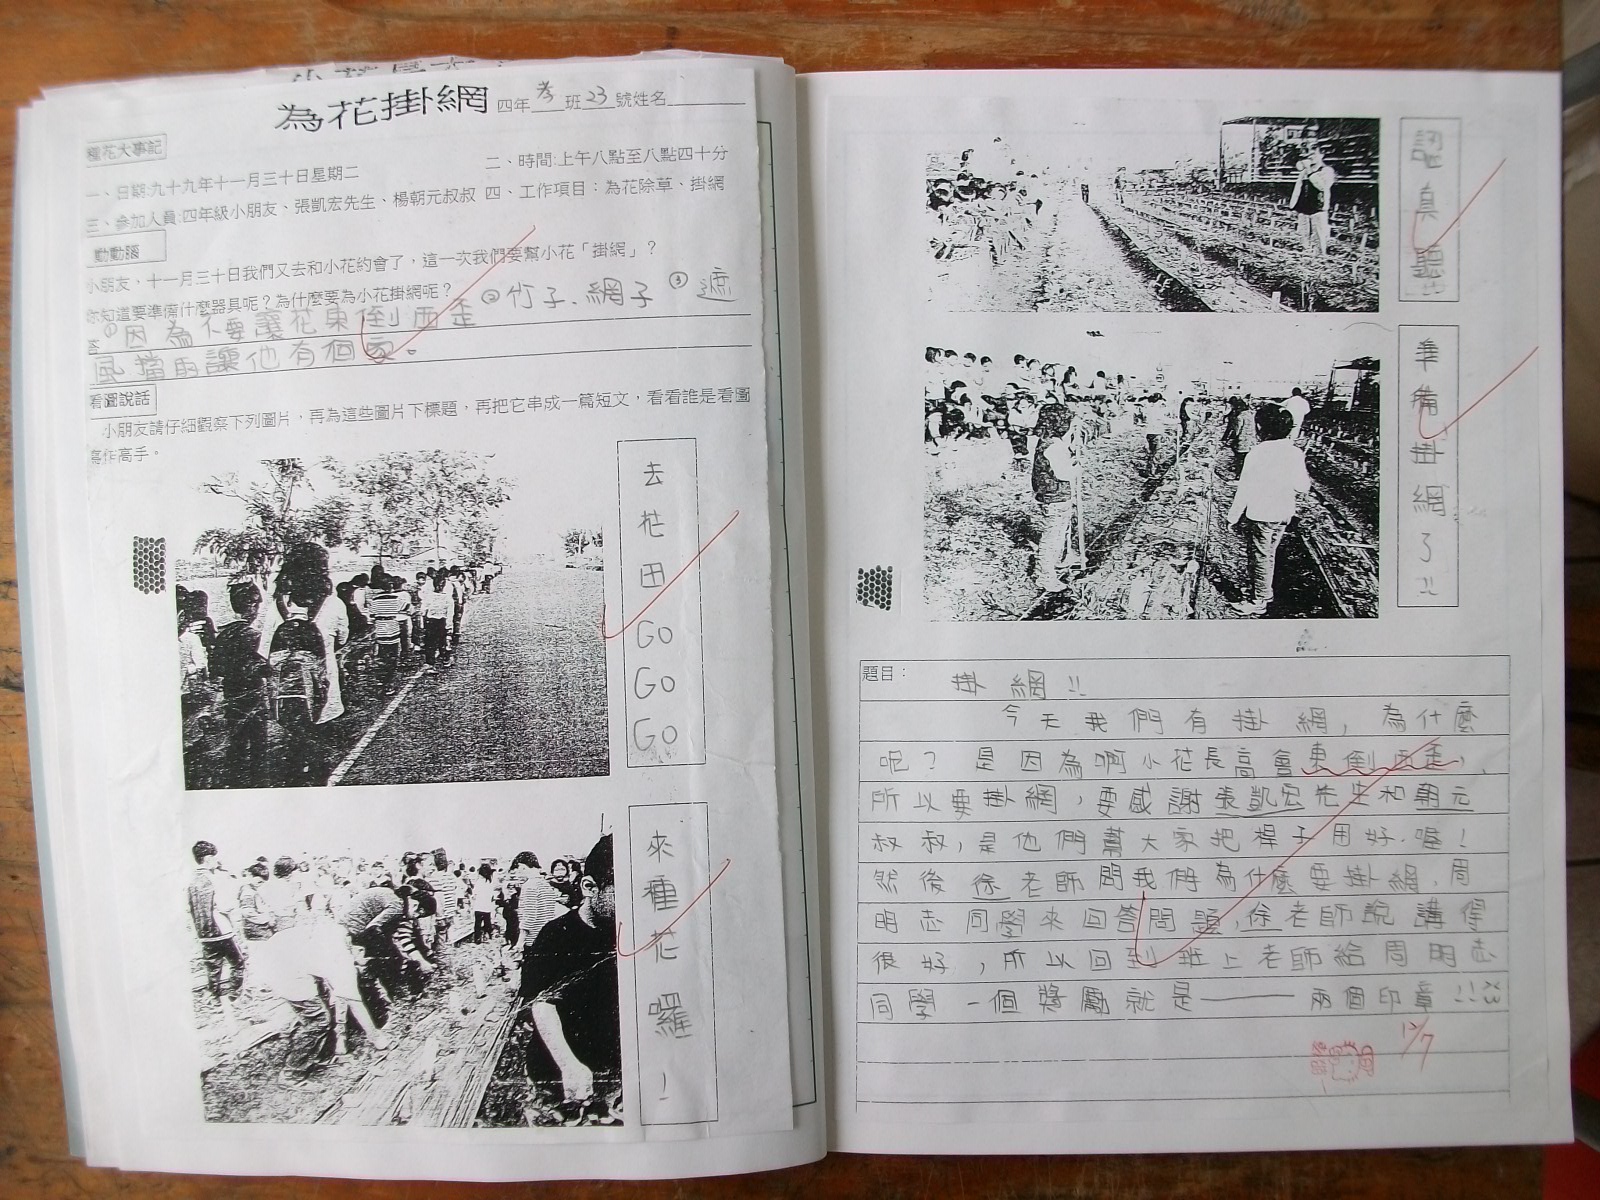 為花掛網 四年孝班23號姓名
種花大事記
一、日期:九十九年十一月三十日星期二
二、時間:上午八點至八點四十分
三、參加人員:四年級小朋友、張凱宏先生、楊朝元叔叔
四、工作項目：為花除草、掛網
動動腦
小朋友，十一月三十日我們又去和小花約會了，這一次我們要幫小花「掛網」？
你知道要準備什麼器具呢？為什麼要為小花掛網呢？
答①因為不要讓花東倒西歪②竹子、網子③遮
風擋雨讓他有個家。
看圖說話
小朋友請仔細觀察下列圖片，再為這些圖片下標題，再把它串成一篇短文，看看誰是看圖
寫作高手。
去花田GoGoGo
來種花囉！
認真聽
準備掛網了!!
題目：掛網!!
今天我們有掛網，為什麼
呢？是因為啊小花長高會東倒西歪，
所以要掛網，要感謝張凱宏先生和朝元
叔叔，是他們幫大家把桿子用好喔！
然後徐老師問我們為什麼要掛網，周
明志同學來回答問題，徐老師說講得
很好，所以回到班上老師給周明志
同學一個獎勵就是——兩個印章!!
12/7